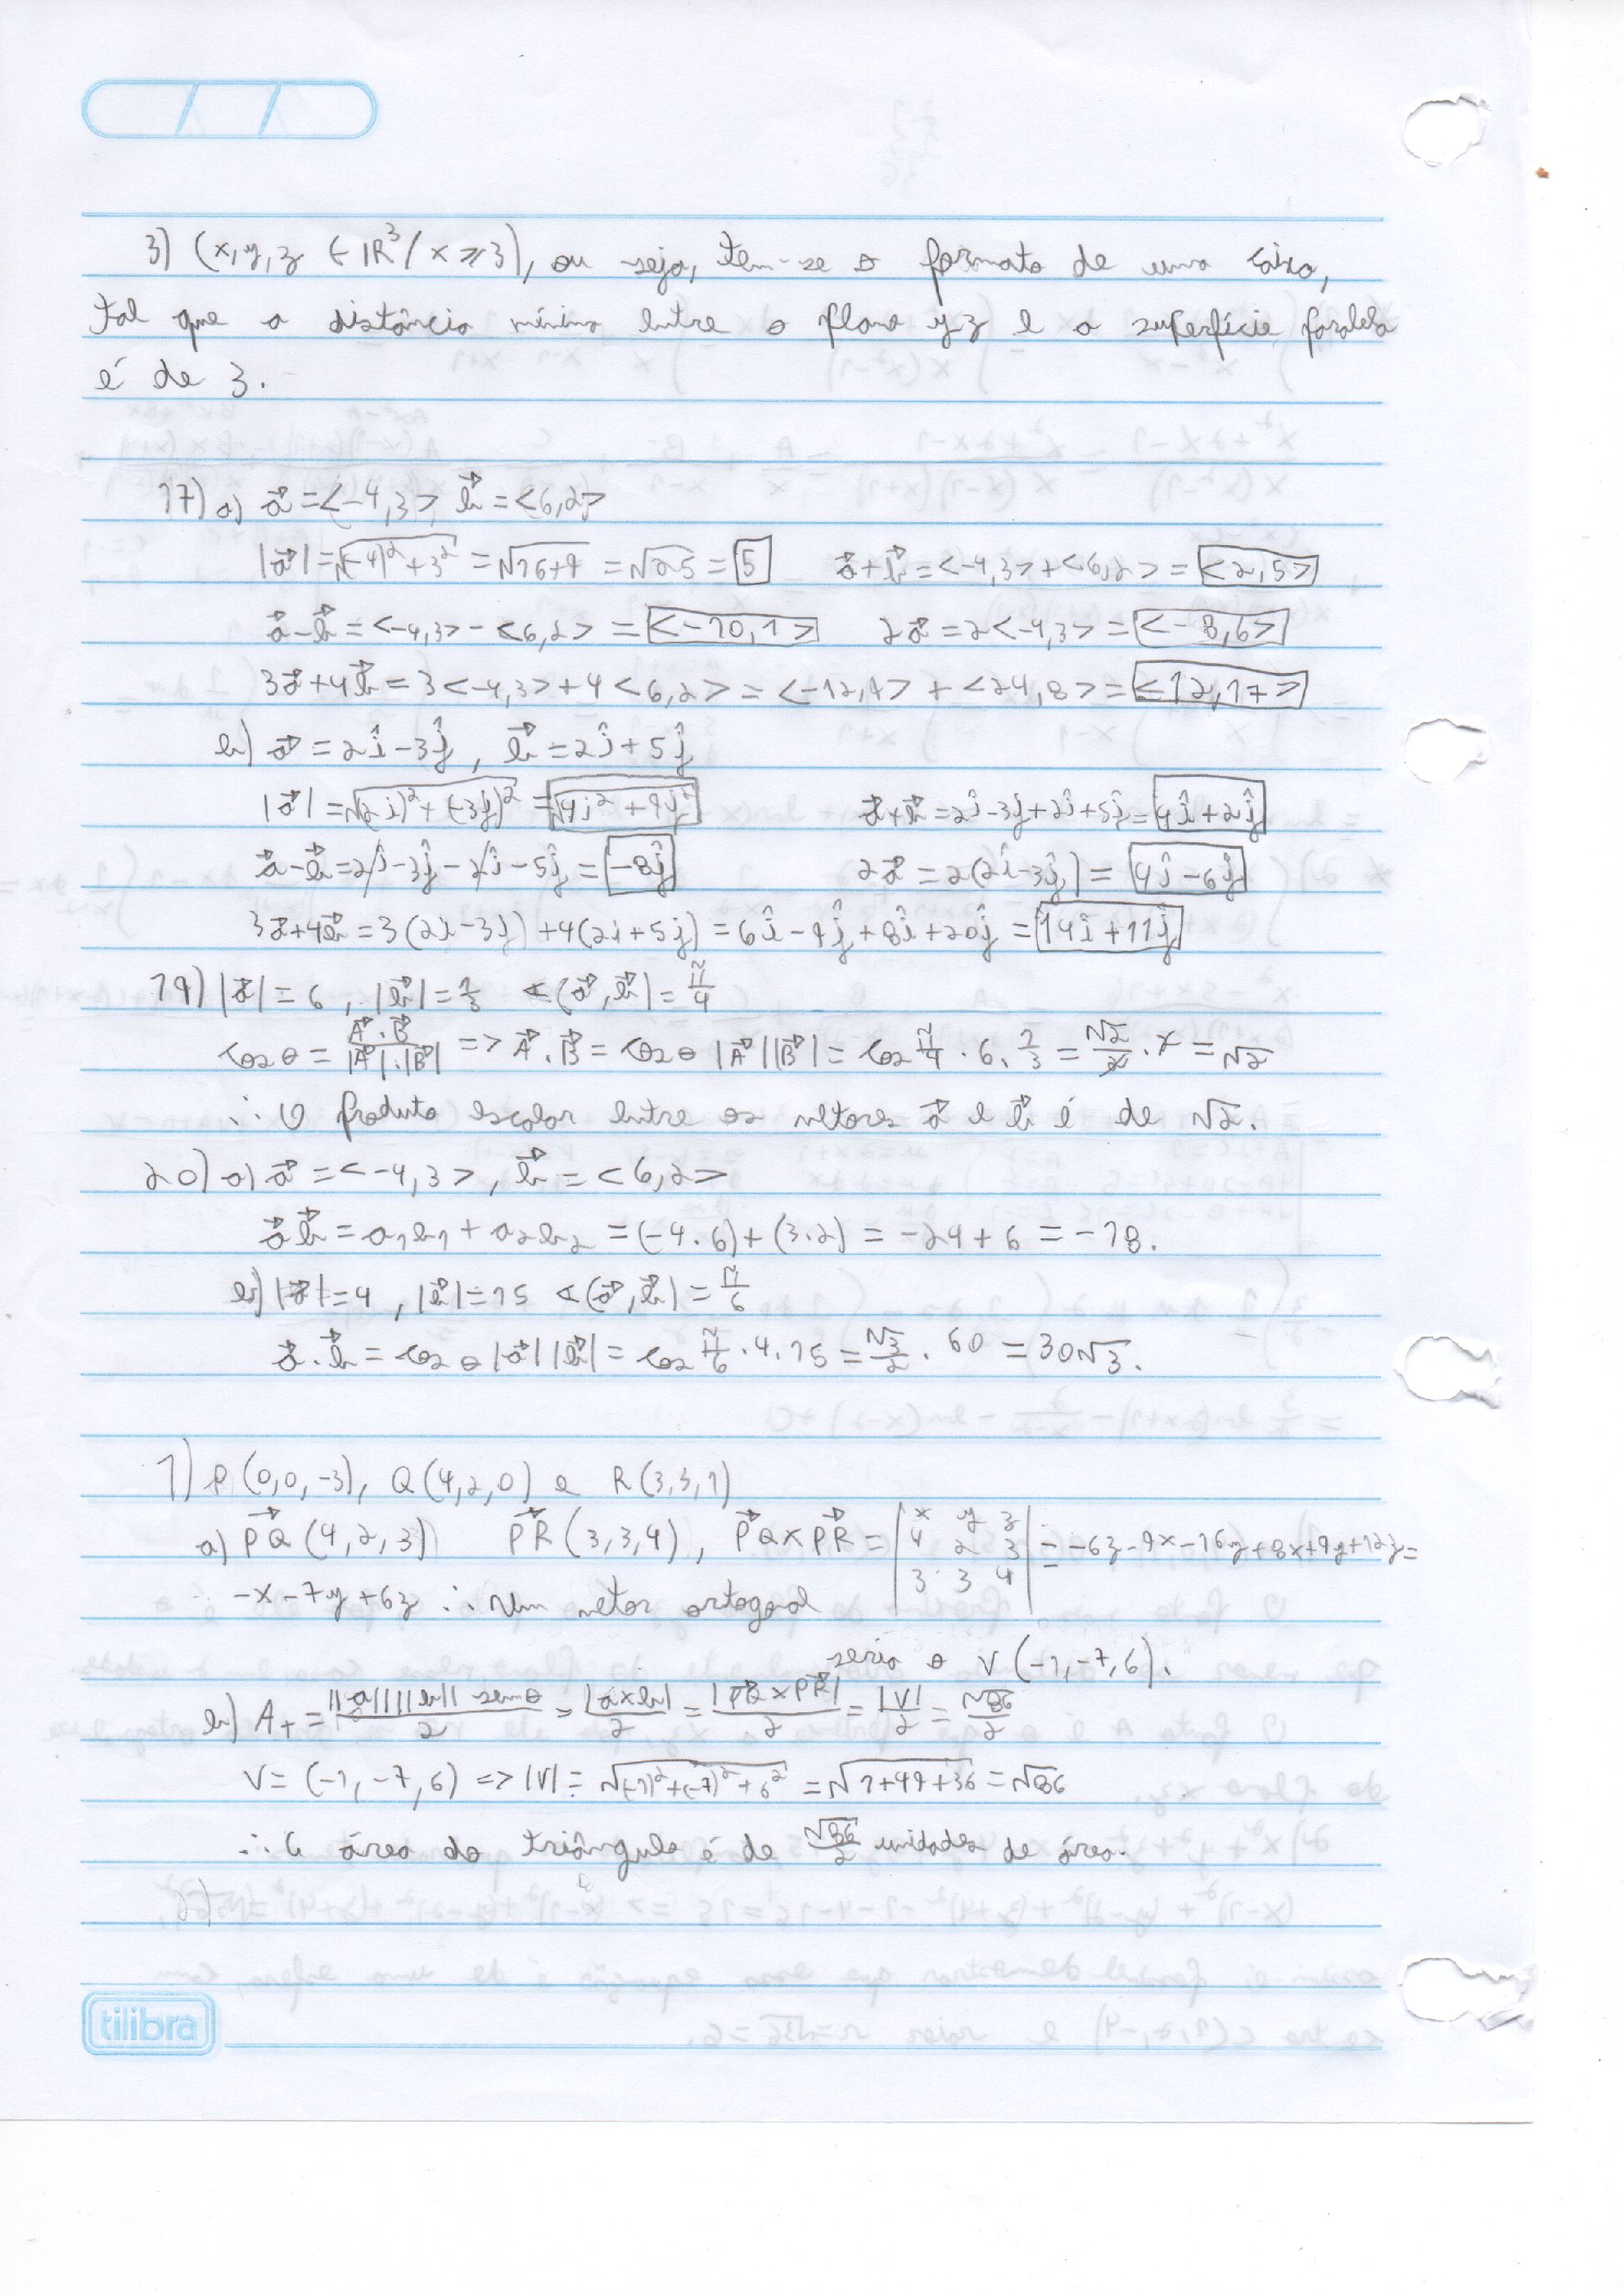 3) (x,y,z ∈ IR³/ x ≥ 3), ou seja, tem-se o formato de uma caixa,
tal que a distância mínima entre o plano yz e a superfície paralela
é de 3.
17) a) a⃗ = <-4,3> b⃗ = <6,2>
|a⃗| = √(-4)² + 3² = √16+9 = √25 = 5 a⃗+b⃗ = <-4,3> + <6,2> = <2,5>
a⃗-b⃗ = <-4,3> - <6,2> = <-10,1> 2a⃗ = 2<-4,3> = <-8,6>
3a⃗+4b⃗ = 3<-4,3> + 4<6,2> = <-12,9> + <24,8> = <12,17>
b) a⃗ = 2î - 3ĵ, b⃗ = 2î + 5ĵ
|a⃗| = √(2i)² + (-3j)² = √4i² + 9j² a⃗+b⃗ = 2î - 3j + 2î + 5ĵ = 4î + 2ĵ
a⃗-b⃗ = 2î - 3ĵ - 2î - 5ĵ = -8ĵ 2a⃗ = 2(2î - 3ĵ) = 4î - 6ĵ
3a⃗+4b⃗ = 3(2i - 3j) + 4(2i + 5j) = 6î - 9ĵ + 8î + 20ĵ = 14î + 11ĵ
19) |a⃗| = 6, |b⃗| = 1/3 ∢(a⃗, b⃗) = π/4
cos θ = A⃗.B⃗/|A⃗|.|B⃗| => A⃗.B⃗ = cos θ |A⃗||B⃗| = cos π/4 . 6 . 1/3 = √2/2 . 2 = √2
∴ O produto escalar entre os vetores a⃗ e b⃗ é de √2.
20) a) a⃗ = <-4,3>, b⃗ = <6,2>
a⃗b⃗ = a₁b₁ + a₂b₂ = (-4.6) + (3.2) = -24 + 6 = -18.
b) |a⃗| = 4, |b⃗| = 15 ∢(a⃗, b⃗) = π/6
a⃗.b⃗ = cos θ |a⃗||b⃗| = cos π/6 . 4 . 15 = √3/2 . 60 = 30√3.
1) P(0,0,-3), Q(4,2,0) e R(3,3,1)
a) PQ⃗ (4,2,3) PR⃗ (3,3,4), PQ⃗ x PR⃗ = | x y z 4 2 3 3 3 4 | = -6z - 9x - 16y + 8x + 9y + 12z =
-x - 7y + 6z ∴ Um vetor ortogonal
seria o V(-1,-7,6).
b) A_T = ||a|| ||b|| sen θ/2 = |a x b|/2 = |PQ⃗ x PR⃗|/2 = |V|/2 = √86/2
V = (-1, -7, 6) => |V| = √(-1)² + (-7)² + 6² = √1+49+36 = √86
∴ A área do triângulo é de √86/2 unidades de área.
tilibra